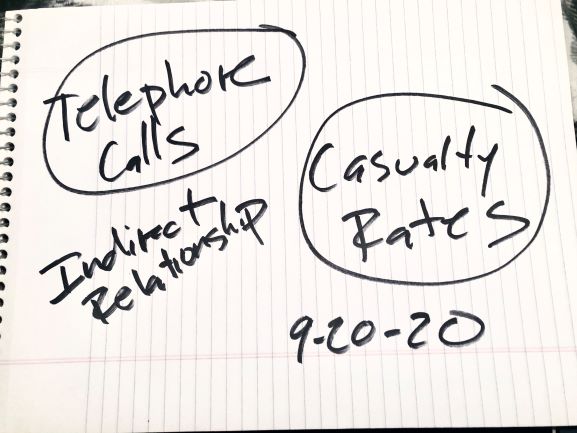 Telephone
Calls
Casualty
Rates
Indirect
Relationship
9-20-20